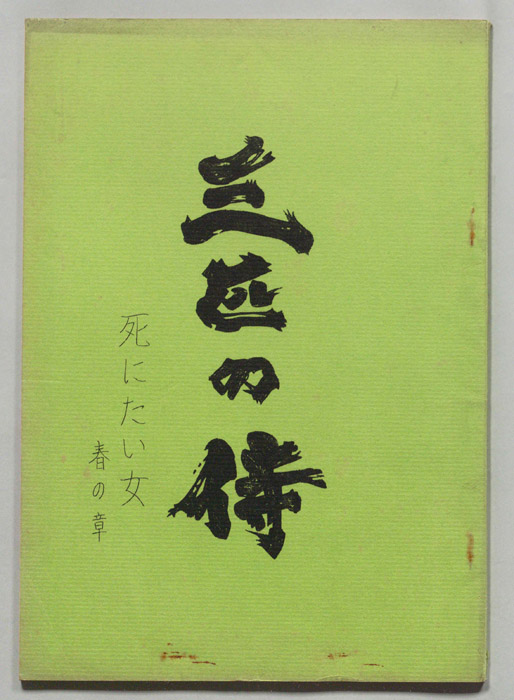 三匹の侍
死にたい女
春の章